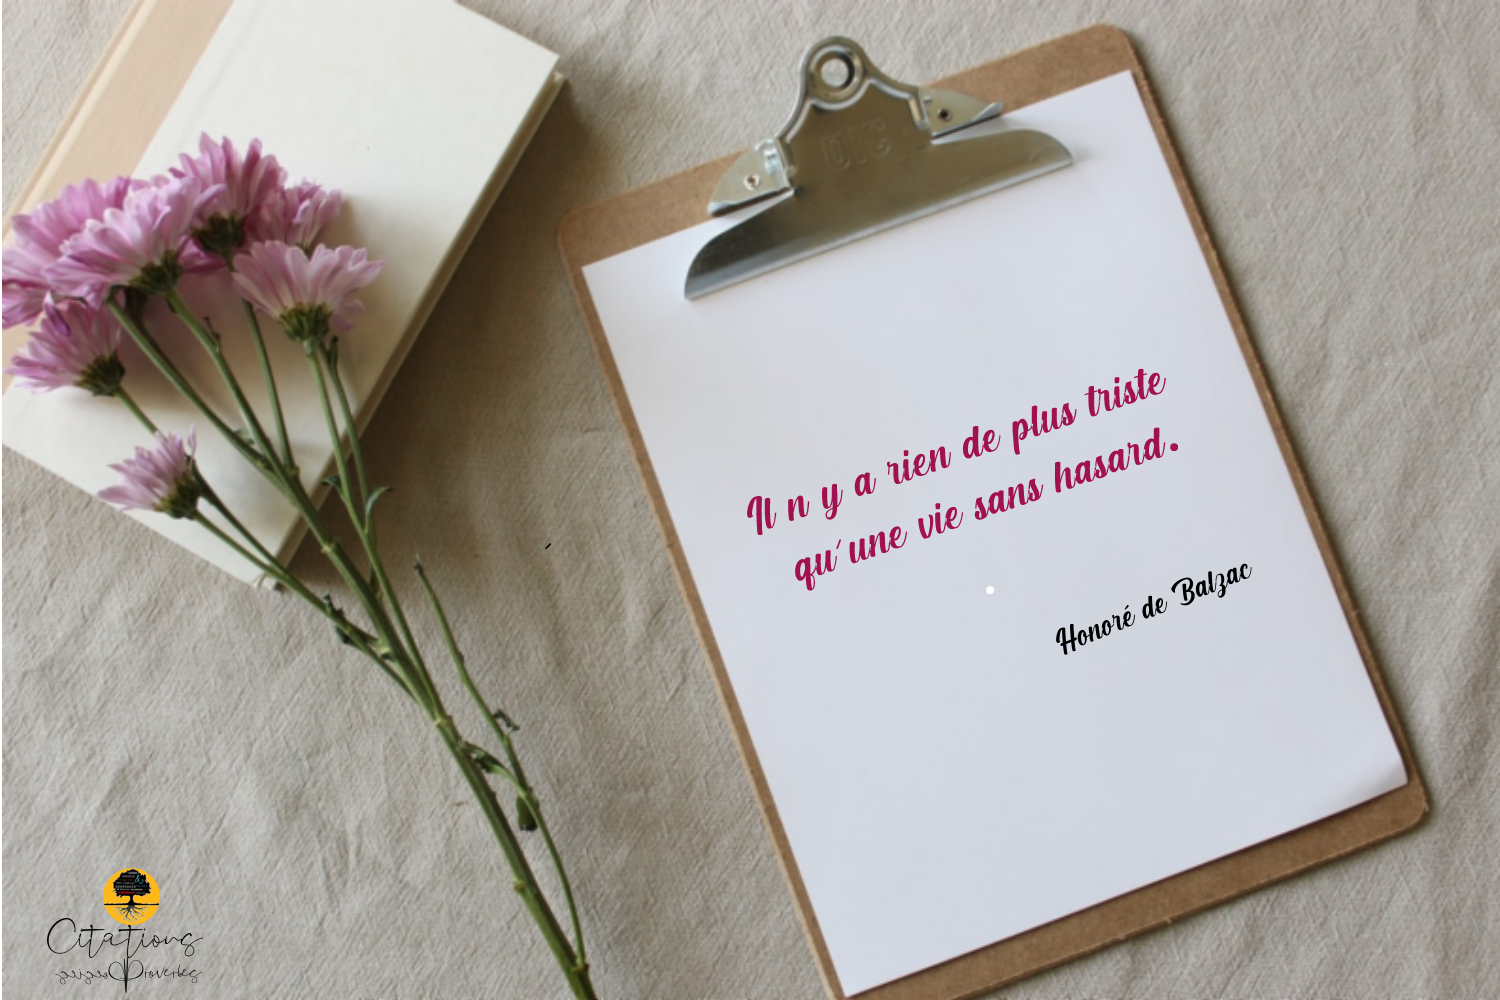 OIC
Il n y a rien de plus triste
qu'une vie sans hasard.
Honoré de Balzac
Citations